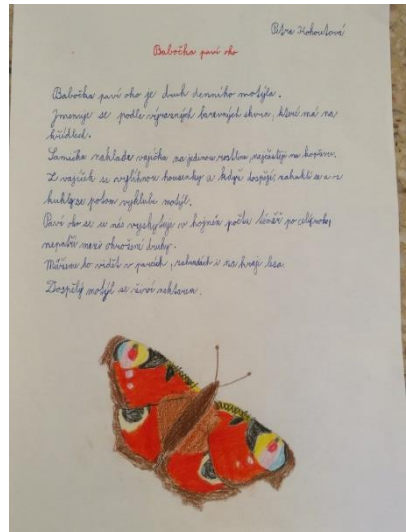 Petra Kohoutová
Babočka paví oko
Babočka paví oko je druh denního motýla.
Jmenuje se podle výrazných barevných skvrn, které má na
křídlech.
Samička naklade vajíčka na jedinou rostlinu nejčastěji na kopřivu.
Z vajíček se vylíhnou housenky a když dospějí, zakuklí se a z
kukly se potom vyklube motýl.
Paví oko se u nás vyskytuje v hojném počtu téměř po celý rok,
nepatří mezi ohrožené druhy.
Můžeme ho vidět v parcích, zahradách i na kraji lesa.
Dospělý motýl se živí nektarem.